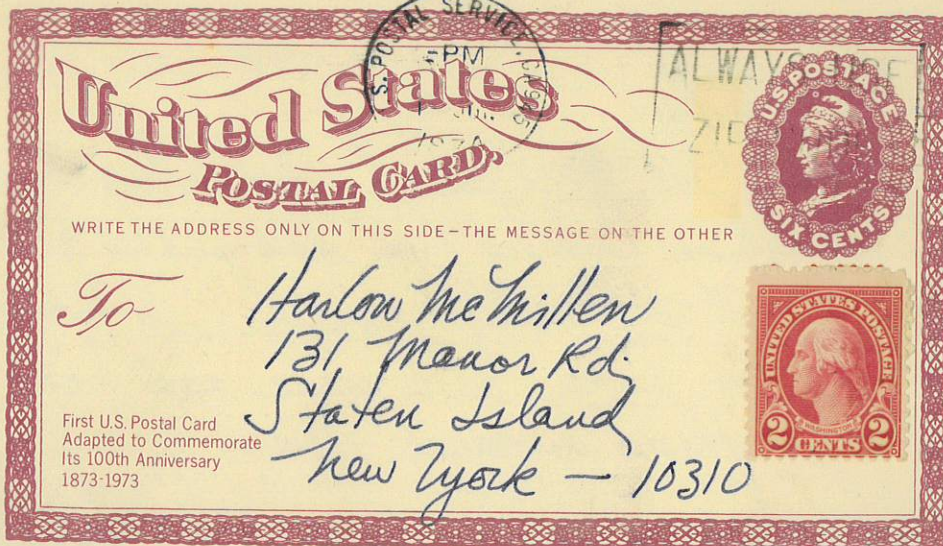 S. POSTAL SERVICE, CA
PM
1974
ALWAYS USE
ZIP
United States
POSTAL CARD.
U.S. POSTAGE
SIX CENTS
WRITE THE ADDRESS ONLY ON THIS SIDE–THE MESSAGE ON THE OTHER
To
Harlow McMillen
131 Manor Rd.
Staten Island
New York — 10310
UNITED STATES POSTAGE
WASHINGTON
2 CENTS 2
First U.S. Postal Card
Adapted to Commemorate
Its 100th Anniversary
1873-1973